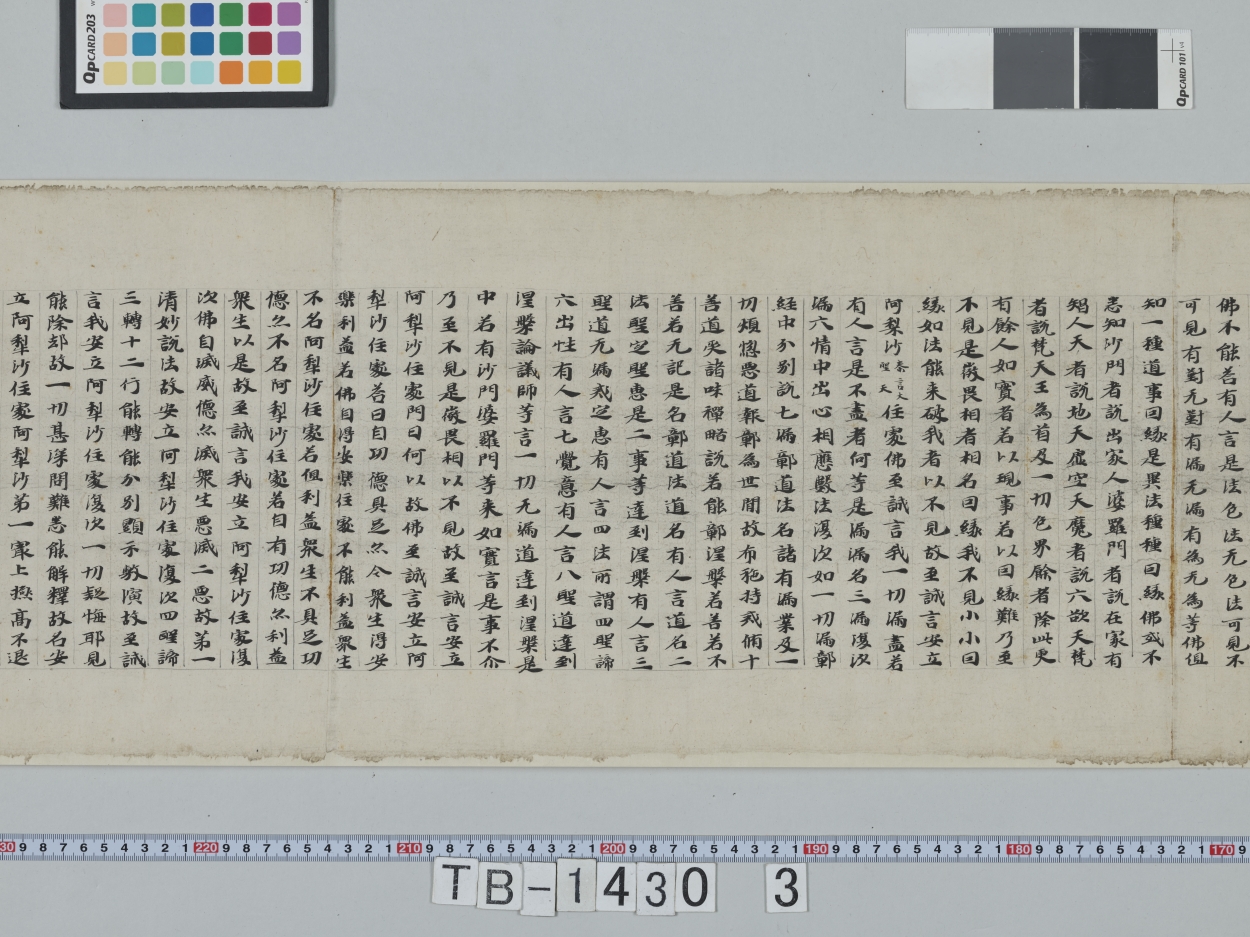 佛不能善有人言是法色法无色法可見不
可見有對无對有漏无漏有為无為等佛但
知一種道事因緣是異法種種因緣佛或不
悉知沙門者說出家人婆羅門者說在家有
智人天者說地天虛空天魔者說六欲天梵
者說梵天王為首及一切色界餘者除此更
有餘人如實者若以現事若以因緣難乃至
不見是微畏相者相名因緣我不見小小因
緣如法能来破我者以不見故至誠言安立
阿犁沙秦言大聖天住處佛至誠言我一切漏盡若
有人言是不盡者何等是漏漏名三漏復次
漏六情中出心相應嚴法復次如一切漏鄣
經中分別說七漏鄣道法名諸有漏業及一
切煩惱惡道報鄣為世間故布施持戒脩十
善道受諸味禪略說若能鄣涅槃若善若不
善若无記是名鄣道法道名有人言道名二
法聖定聖惠是二事等達到涅槃有人言三
聖道无漏戒定惠有人言四法所謂四聖諦
六出性有人言七覺意有人言八聖道達到
涅槃論議師等言一切无漏道達到涅槃是
中若有沙門婆羅門等来如實言是事不介
乃至不見是微畏相以不見故至誠言安立
阿犁沙住處問曰何以故佛至誠言安立阿
犁沙住處荅曰自功德具足亦令衆生得安
樂利益若佛自得安樂住處不能利益衆生
不名阿犁沙住處若但利益衆生不具足功
德亦不名阿犁沙住處若自有功德亦利益
衆生以是故至誠言我安立阿犁沙住處復
次佛自滅威德亦滅衆生惡滅二惡故第一
清妙說法故安立阿犁沙住處復次四聖諦
三轉十二行能轉能分別顯示敷演故至誠
言我安立阿犁沙住處復次一切疑悔耶見
能除却故一切甚深問難悉能解釋故名安
立阿犁沙住處阿犁沙第一寂上極髙不退
QpCARD 203
QpCARD 101 v4
TB-1430 3